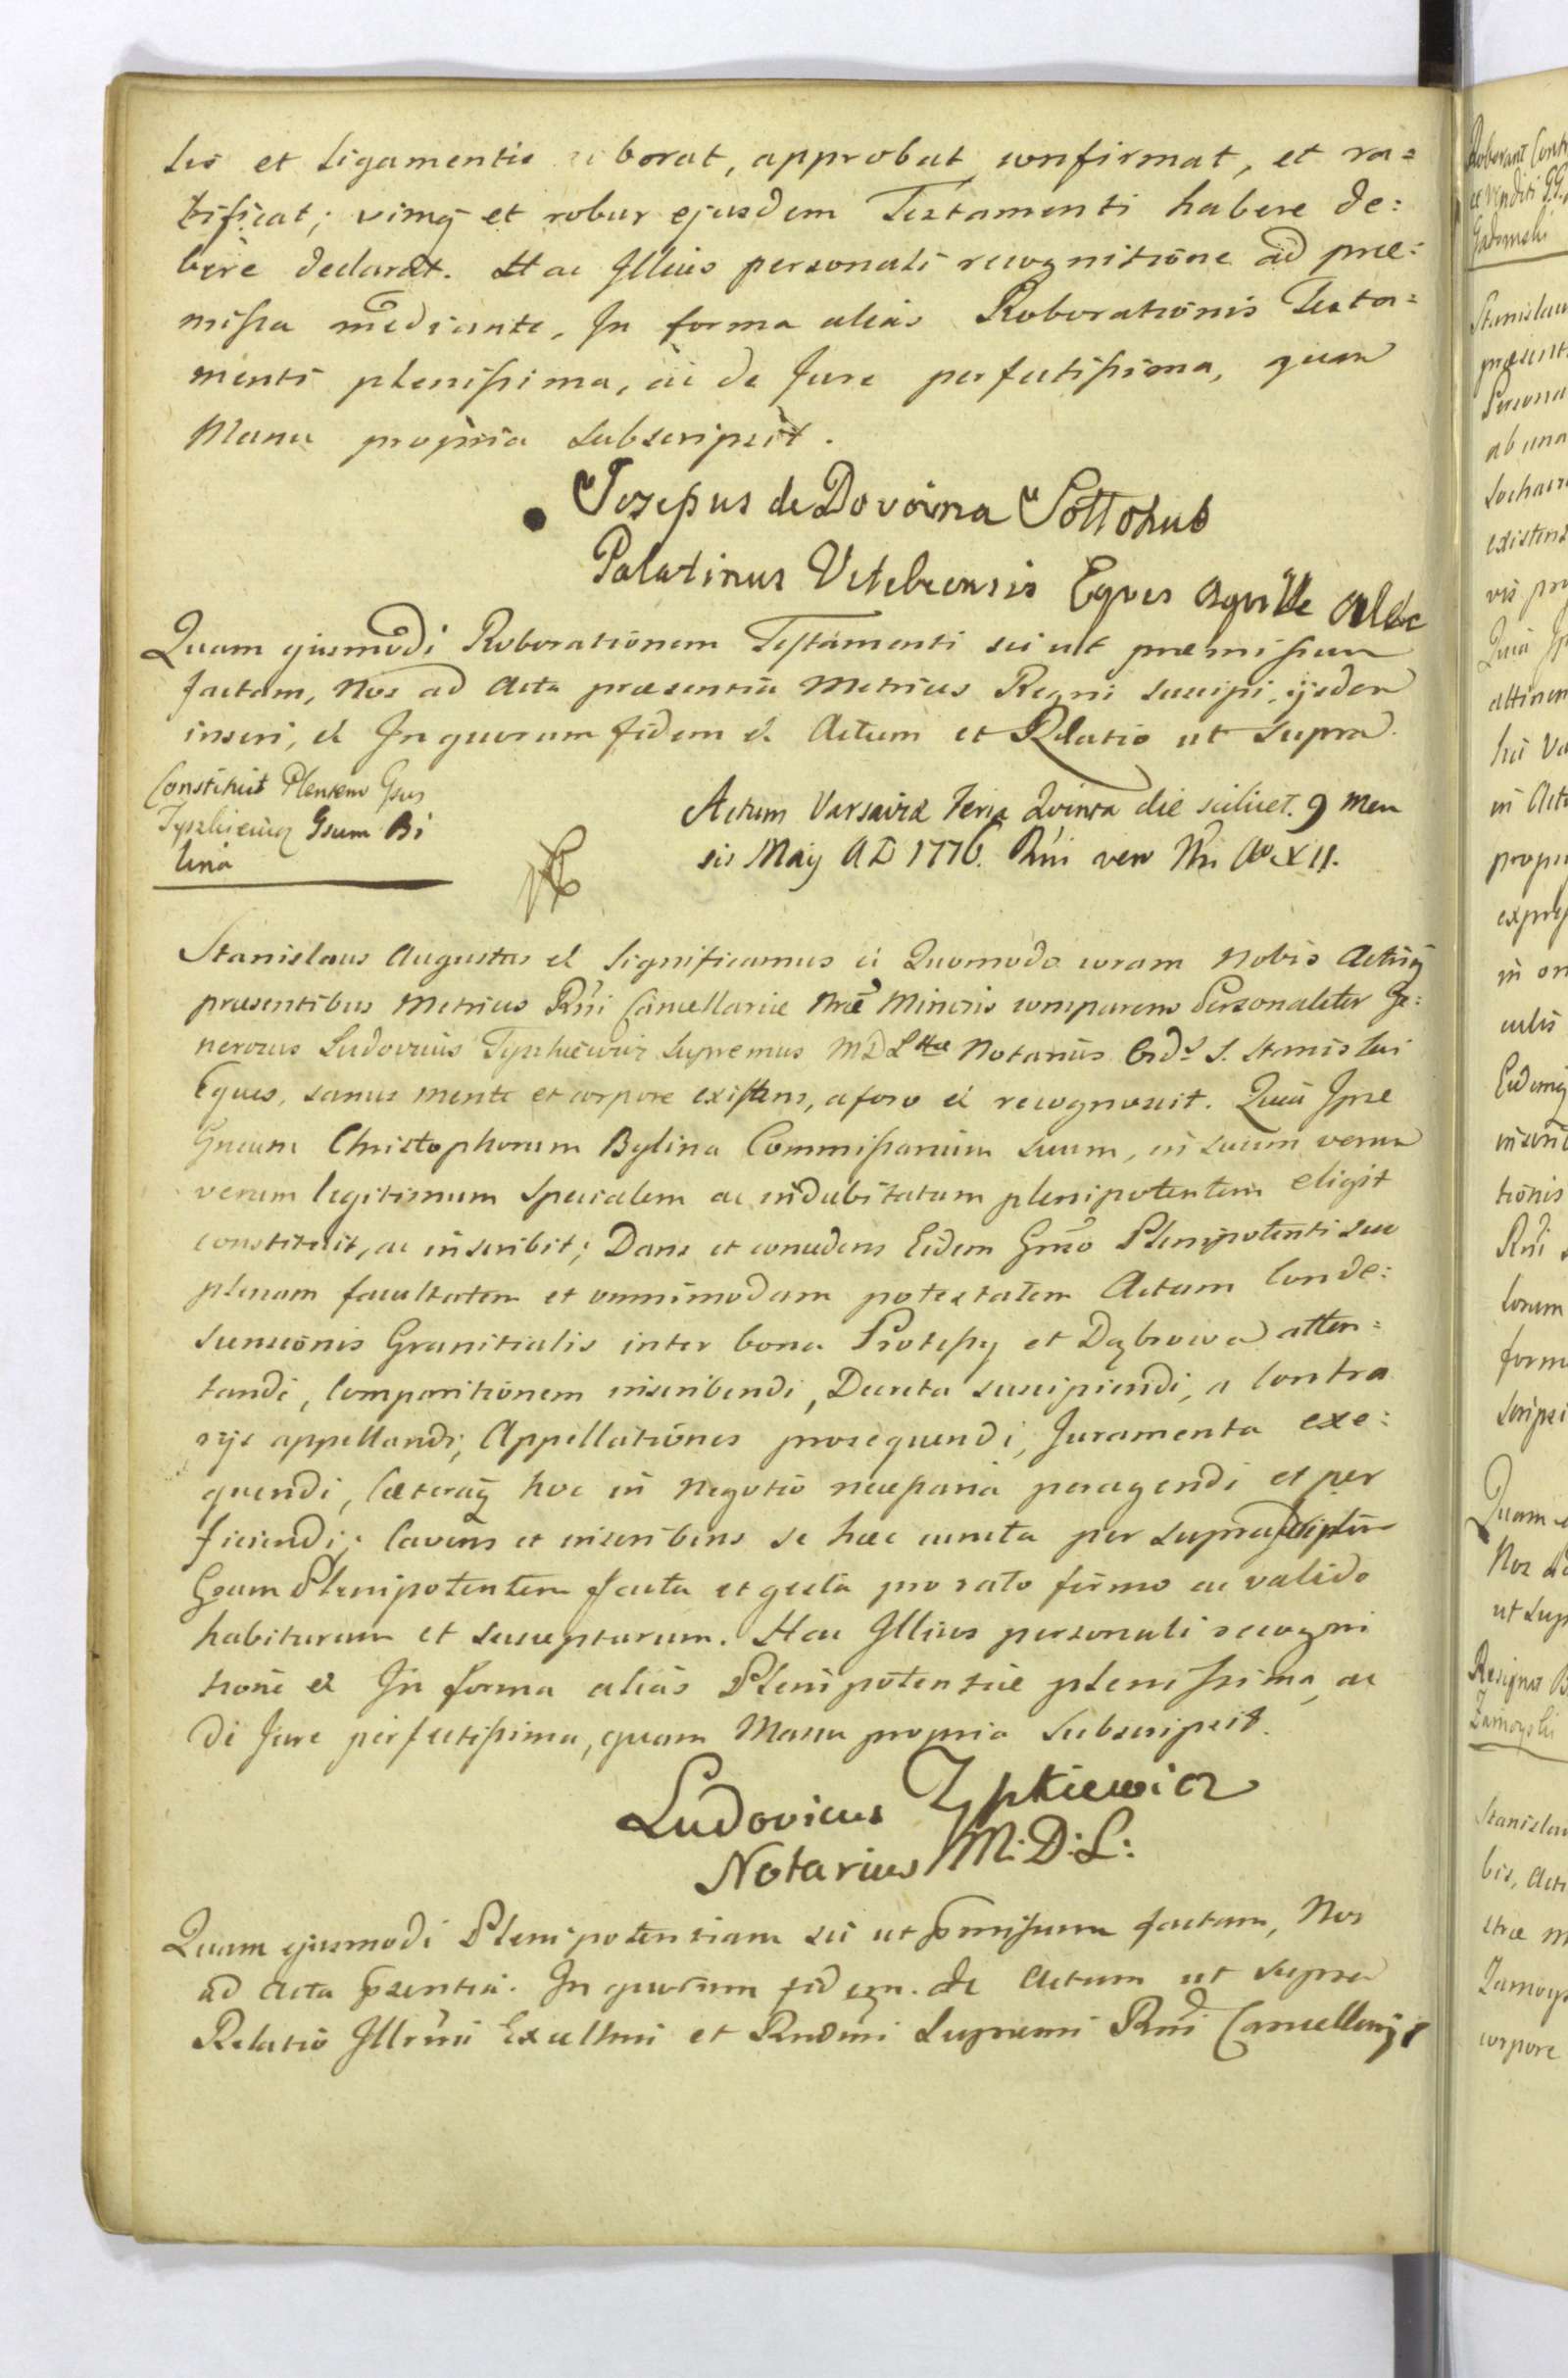 lis et Ligamentis roborat, approbat confirmat, et ra=
tificat; vimq et robur ejusdem Testamenti habere de:
bere declarat. Hac Illius personali recognitione ad præ:
missa mediante. In forma alias Roborationis Testa=
menti plenissima, ac de Jure perfectissima, quam
Manu propria subscripsit.
Josepus de Dovoina Sottohub
Palatinus Vitebcensis Eques aquille albe
Quam ejusmodi Roborationem Testamenti sic ut præmissum
factam, Nos ad Acta præsentia Metrices Regni suscipi, ijsdem
inseri, et In quorum fidem et Actum et Relatio ut supra.
Constituit Plentem Gsus
Tyszkiewicz Gsum Bi
lina
Actum Varsaviæ Feria Quinta die scilicet. 9 Men
sis Maij A D 1776. Rni vero Nri Ao XII.
Stanislaus Augustus et Significamus ei Quomodo coram Nobis Actisq
præsentibus Metrices Rni Cancellariæ Nræ Minoris comparens Personaliter Ge:
nerosus Ludovicus Tyszkiewicz Supremus M D Lttæ Notarius Ords S. Stanislai
Eques, sanus mente et corpore existens, a foro et recognovit. Quia Ipse
Gneum Christophorum Bylina Commissarium suum, in suum verum
verum legitimum specialem ac indubitatum plenipotentem eligit
constituit, ac inscribit; Dans et concedens Eidem Gnso Plenipotenti suo
plenam facultatem et omnimodam potestatem Actum Conde:
scensionis Granitialis inter bona Protessy et Dąbrowa atten=
tandi, Comparitionem inscribendi, Decreta suscipiendi, a Contra
rijs appellandi; Appellationes prosequendi, Juramenta exe:
quendi, Cæteraq hoc in Negotio necessaria peragendi et per
ficiendi; Cavens et inscribens se hæc cuncta per suprascriptum
Gsum Plenipotentem facta et gesta pro rato firmo ac valido
habiturum et suscepturum. Hac Illius personali recogni
tione et In forma alias Plenipotentiæ plenissima, ac
de Jure perfectissima, quam Manu propria Subscripsit.
Ludovicus Tyszkiewicz
Notarius M: D: L:
Quam ejusmodi Plenipotentiam sic ut pmissum factam, Nos
ad Acta psentia. In quorum fidem. et Actum ut supra
Relatio Illrmi Excellmi et Rndmi Supremi Rni Cancellarij